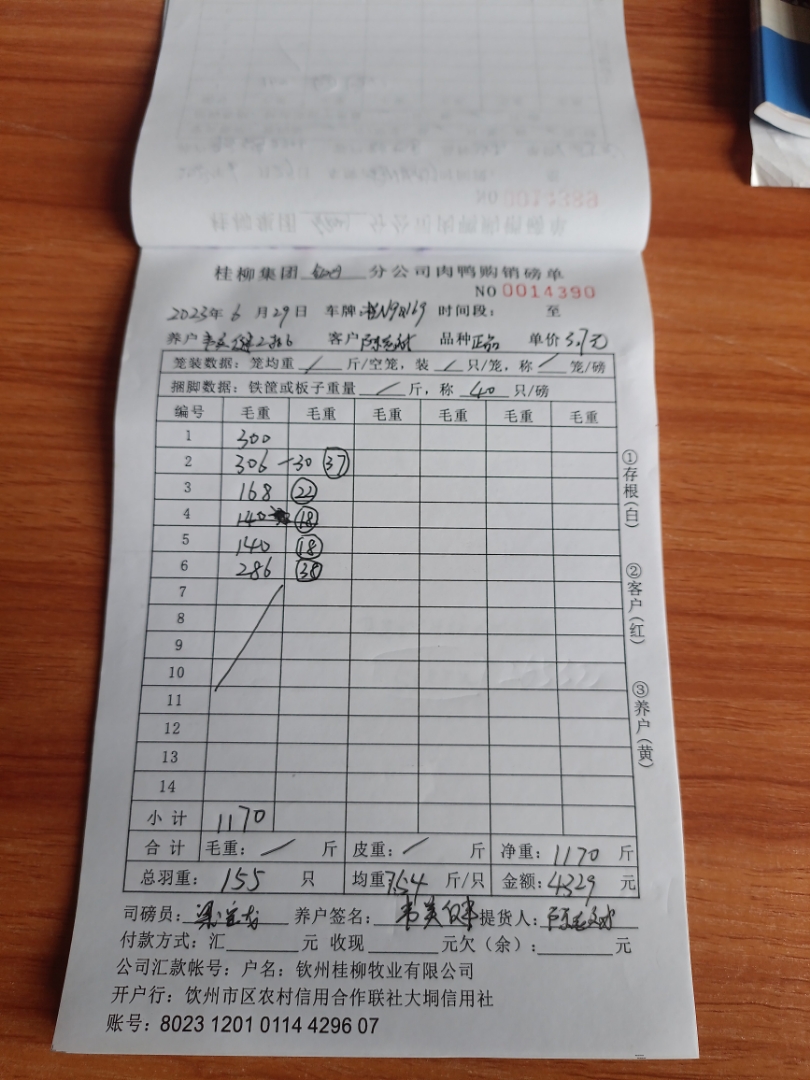 NO 0014389
桂柳集团 分公司肉鸭购销磅单
NO 0014390
2023年 6 月 29 日 车牌 桂N98169 时间段: 至
养户 客户 品种 正品 单价 3.7元
笼装数据: 笼均重 / 斤/空笼, 装 / 只/笼, 称 / 笼/磅
捆脚数据: 铁筐或板子重量 / 斤, 称 40 只/磅
编号 毛重 毛重 毛重 毛重 毛重
1 300
2 306 -30 37
3 168 22
4 140 18
5 140 18
6 286 38
7
8
9
10
11
12
13
14
小计 1170
合计 毛重: / 斤 皮重: / 斤 净重: 1170 斤
总羽重: 155 只 均重 7.54 斤/只 金额: 4329 元
司磅员: 养户签名: 提货人:
付款方式: 汇 元 收现 元欠(余): 元
公司汇款帐号: 户名: 钦州桂柳牧业有限公司
开户行: 饮州市区农村信用合作联社大垌信用社
账号: 8023 1201 0114 4296 07
①存根(白)
②客户(红)
③养户(黄)